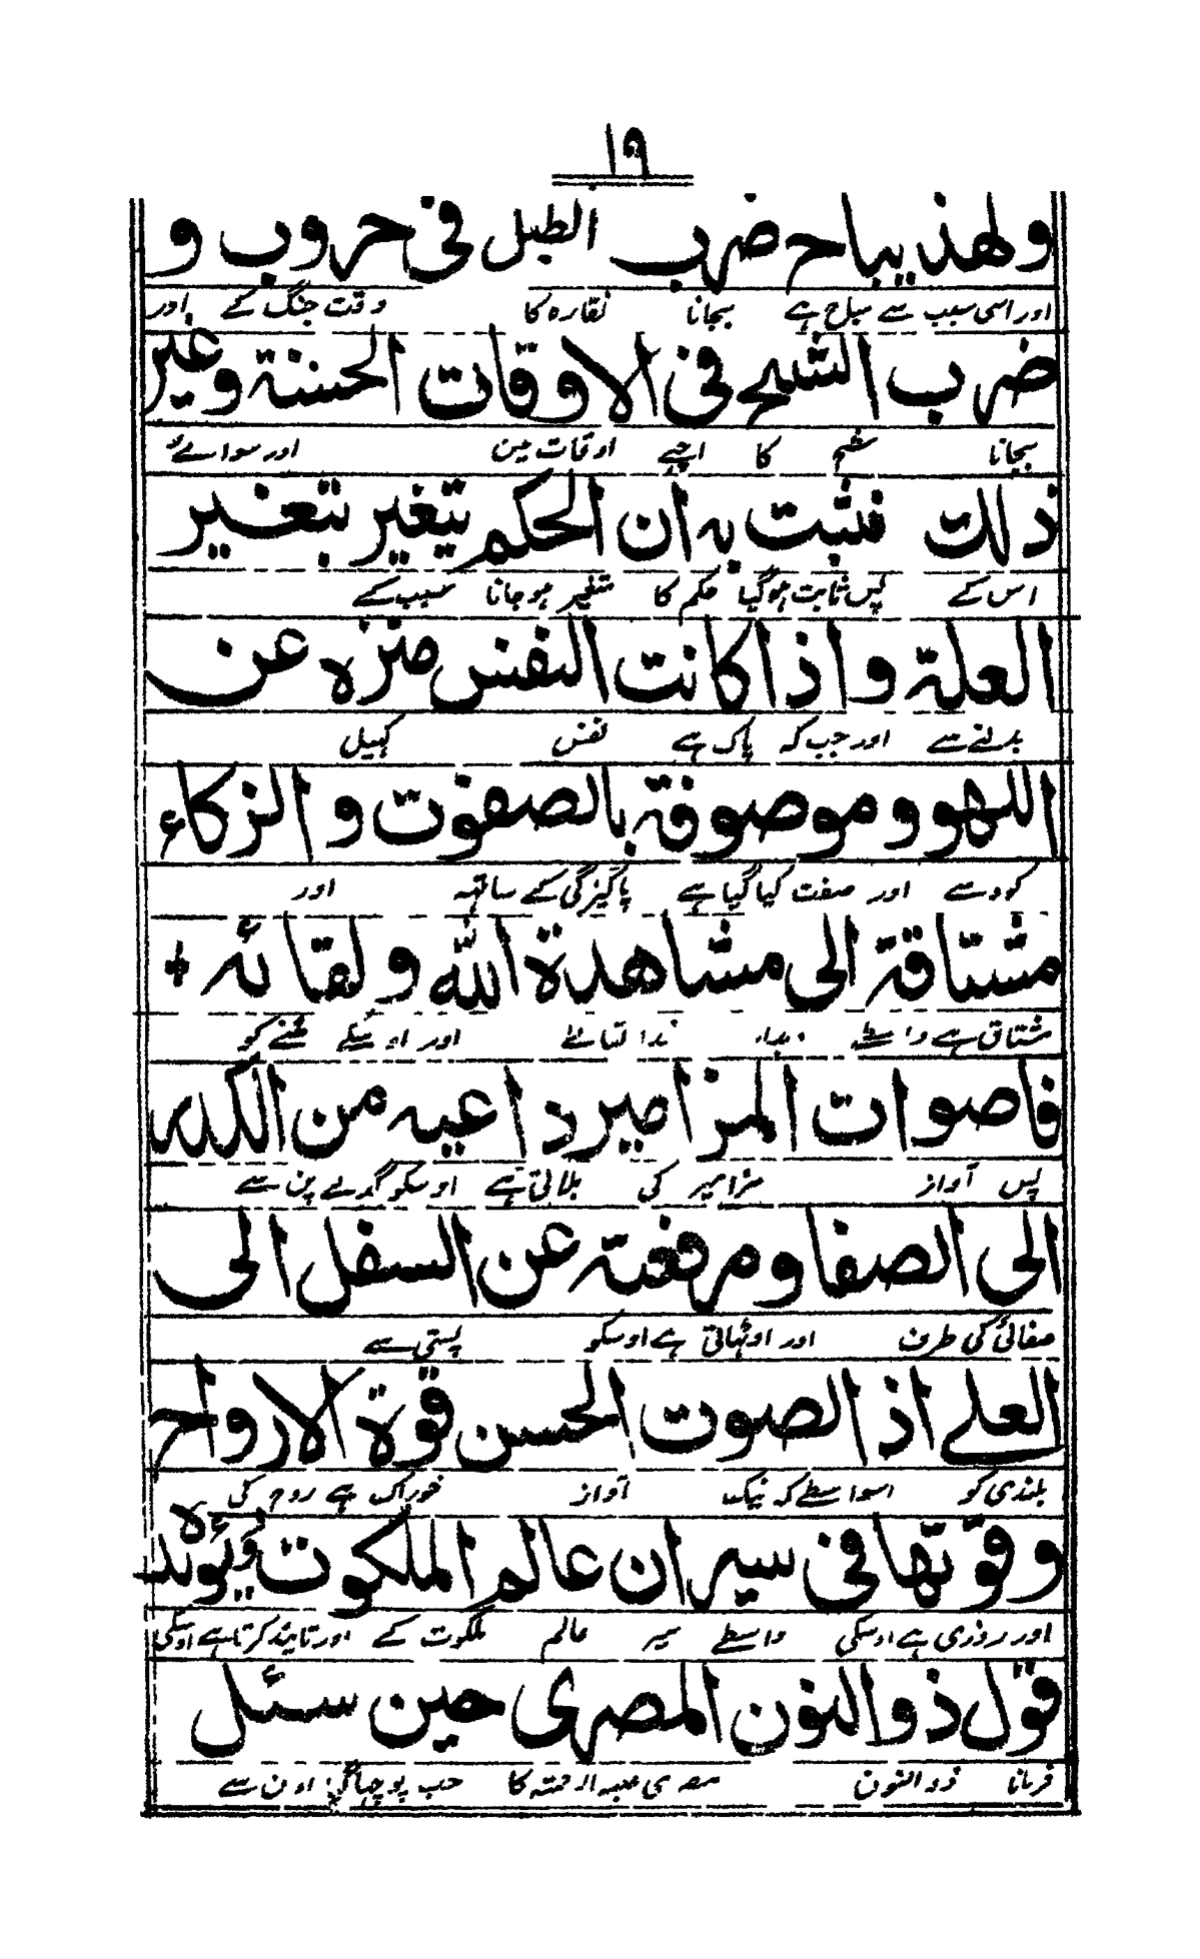 ١٩
ولهذ يباح ضرب الطبل فی حروب و
اور اسی سبب سے مباح ہے بجانا نقارہ کا وقت جنگ کے اور
ضرب الشح فی الاوقات الحسنة وغیر
بجانا کا اچھے اوقات مین اور سوائے
ذلك فثبت به ان الحکم یتغیر بتغیر
اس کے پس ثابت ہوگیا حکم کا متغیر ہوجانا سبب کے
العلة و اذا کانت النفس منزه عن
بدلنے سے اور جب کہ پاک ہے نفس کہیل
اللهو و موصوفة بالصفوت و الزکاء
کود سے اور صفت کیا گیا ہے پاکیزگی کے ساتھہ اور
مشتاقة الی مشاهدة الله و لقائه +
مشتاق ہے واسطے دیدار خدا تعالے اور اوسکے ملنے کو
فاصوات المزامیر داعیه من الکدر
پس آواز مزامیر کی بلاتی ہے اوسکو گدلے پن سے
الی الصفا و مرفعة عن السفل الی
صفائی کی طرف اور اوٹہاتی ہے اوسکو پستی سے
العلے اذ الصوت الحسن قوة الارواح
بلندی کو اسواسطے کہ نیک آواز خوراک ہے روح کی
و قوتها فی سیران عالم الملکوت ویؤیده
اور روزی ہے اوسکی واسطے سیر عالم ملکوت کے اور تایید کرتا ہے اوسکی
قول ذو النون المصری حین سئل
فرمانا ذوالنون مصری کا جب پوچہا گیا اون سے